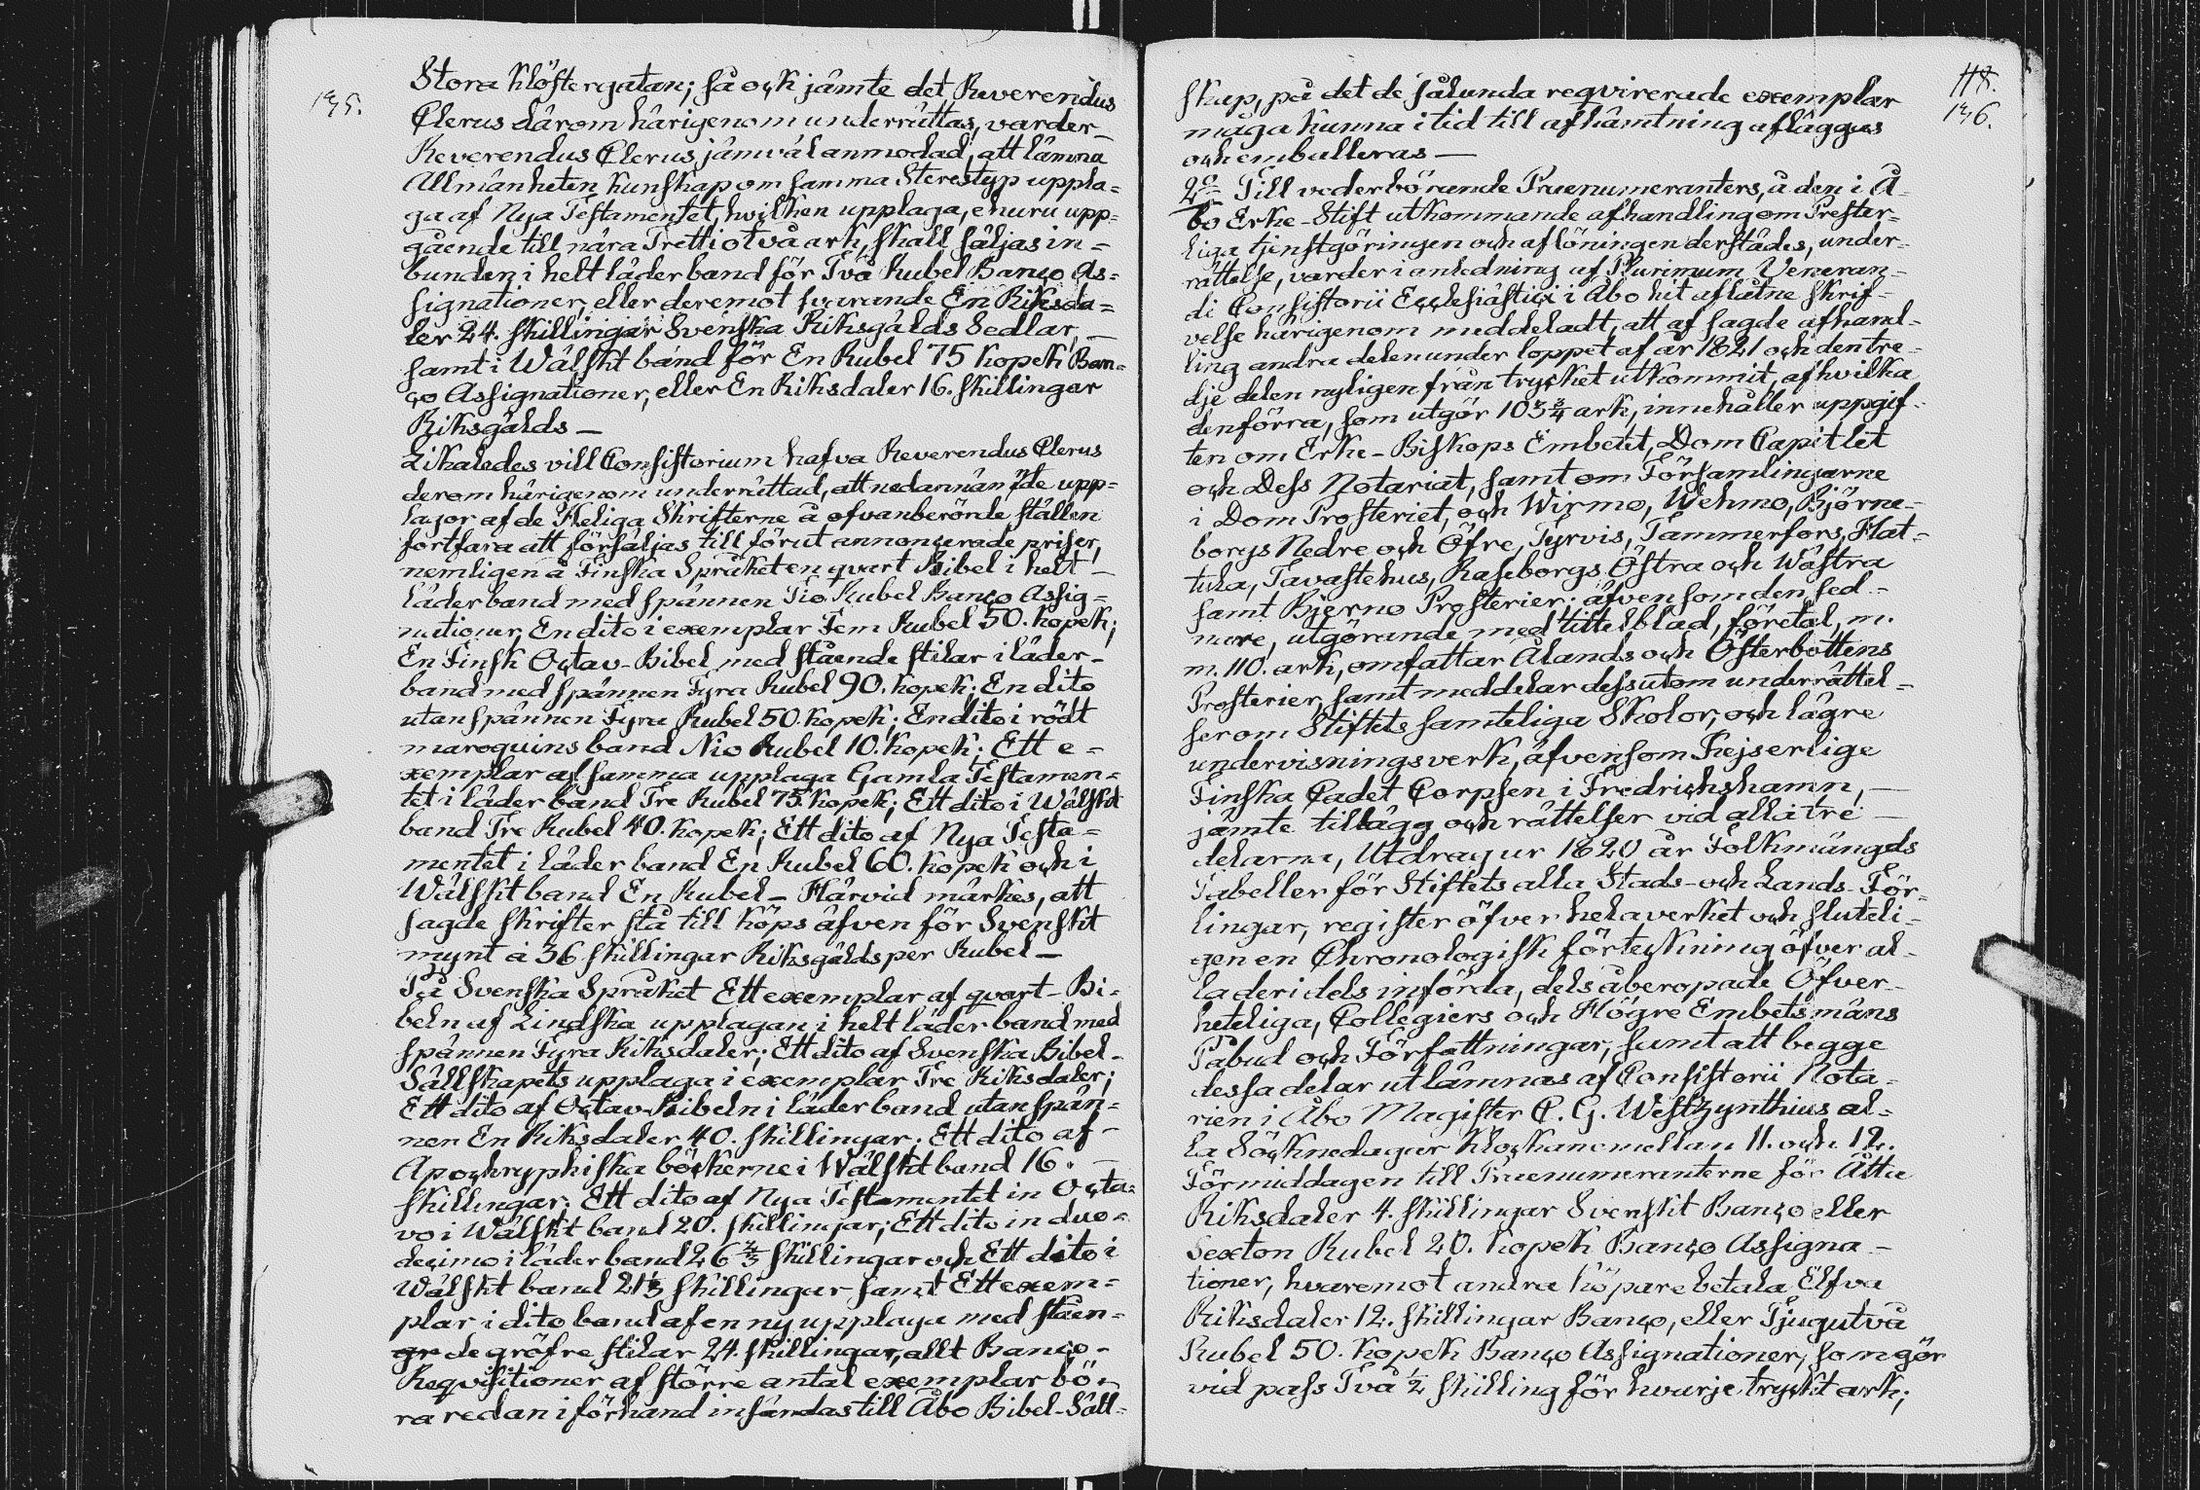 195.
Stora Klöstergatan; så ock jämte det Reverendus
Clerus därom härigenom underrättas, varder
Reverendus Clerus jämväl anmodad, att lämna
Allmänheten Kunskap om samma Stereotyp uppla=
ga af Nya Testamentet, hvilken upplaga, ehuru upp=
gående till nära Trettiotvå ark, skall säljas in=
bunden i helt läderband för Två Rubel Banco As=
signationer, eller deremot svarande En Riksda=
ler 24. skillingar Svenska Riksgälds Sedlar, —
samt i Wälskt band för En Rubel 75 Kopek Ban=
co Assignationer, eller En Riksdaler 16. skillingar
Riksgälds —
Likaledes vill Consistorium hafva Reverendus Clerus
derom härigenom underrättad, att nedannämde upp=
lagor af de Heliga Skrifterne å ofvanberörde ställen
fortfara att försäljas till förut annoncerade priser,
nemligen å Finska Språket en quart Bibel i helt —
läderband med spännen Tio Rubel Banco Assig=
nationer, En dito i exemplar Fem Rubel 50. Kopek;
En Finsk Octav-Bibel med stående stilar i läder-
band med spännen Fyra Rubel 90. Kopek; En dito
utan spännen Fyra Rubel 50 Kopek; En dito i rödt
maroquins band Nio Rubel 10. Kopek; Ett e=
xemplar af samma upplaga Gamla Testamen=
tet i läderband Tre Rubel 75 Kopek; Ett dito i Wälskt
band Tre Rubel 40. Kopek; Ett dito af Nya Testa=
mentet i läder band En Rubel 60. Kopek och i
Wälskt band En Rubel — Härvid märkes, att
sagde skrifter stå till köps äfven för Svenskt
mynt à 36 skillingar Riksgälds per Rubel —
På Svenska Språket Ett exemplar af qvart-Bi=
beln af Lindska upplagan i helt läder band med
spännen Fyra Riksdaler; Ett dito af Svenska Bibel-
Sällskapets upplaga i exemplar Tre Riksdaler;
Ett dito af Octav-Bibeln i läder band utan spän=
nen En Riksdaler 40. skillingar; Ett dito af —
Apochryphiska böckerne i Wälskt band 16. —
skillingar; Ett dito af Nya Testamentet in Octa=
vo i Wälskt band 20. skillingar; Ett dito in duo=
decimo i läderband 26 2/3 skillingar och Ett dito i
Wälskt band 21 1/3 skillingar samt Ett exem=
plar i dito band af en ny upplaga med ståen=
de gröfre stilar 24. skillingar, allt Banco -
Reqvisitioner af större antal exemplar bö=
ra redan i förhand insändas till Åbo Bibel-Säll=
196.
skap, på det de sålunda reqvirerade exemplar
måga kunna i tid till afhämtning afläggas
och emballeras —
2o Till vederbörande Praenumeranters, å den i Å=
bo Erke-Stift utkommande afhandling om Prester=
liga tjenstgöringen och aflöningen derstädes, under=
rättelse, varder i anledning af Plurimum Veneran=
di Consistorii Ecclesiastici i Åbo hit aflåtne skrif=
velse härigenom meddeladt, att af sagde afhand=
ling andra delen under loppet af år 1821 och den tre=
dje delen nyligen från trycket utkommit, af hvilka
den förra, som utgör 103 3/4 ark, innehåller uppgif=
ten om Erke-Biskops Embetet, Dom Capitlet
och Dess Notariat, samt om Församlingarne
i Dom Prosteriet, och Wirmo, Wehmo, Björne=
borgs Nedre och Öfre, Tyrvis, Tammerfors, Hat=
tula, Tavastehus, Raseborgs Östra och Wästra
samt Bjerno Prosterier; äfvensom den sed=
nare, utgörande med tittelblad, företal, m.
m. 110. ark, omfattar Ålands och Österbottens
Prosterier, samt meddelar dessutom underrättel=
ser om Stiftets samteliga Skolor, och lägre
undervisningsverk, äfvensom Kejserlige
Finska Cadet Corpsen i Fredrichshamn, —
jämte tillägg och rättelser vid alla tre —
delarne, Utdrag ur 1820 år Folkmängds
Tabeller för Stiftets alla Stads- och Lands-För=
lingar, register öfver hela verket och sluteli=
gen en Chronologisk förteckning öfver al=
la deri dels införda, dels åberopade Öfver=
heteliga, Collegiers och Högre Embetsmäns
Påbud och Författningar, samt att begge
dessa delar utlämnas af Consistorii Nota=
rien i Åbo Magister C. G. Westzynthius al=
la Söcknedagar klockan emellan 11. och 12.
Förmiddagen till Praenumeranterne för Åtta
Riksdaler 4. skillingar Svenskt Banco eller
Sexton Rubel 20. Kopek Banco Assigna=
tioner, hvaremot andra köpare betala Elfva
Riksdaler 12. skillingar Banco, eller Tjugutvå
Rubel 50. Kopek Banco Assignationer, som gör
vid pass Två 1/2 skilling för hvarje tryckt ark;